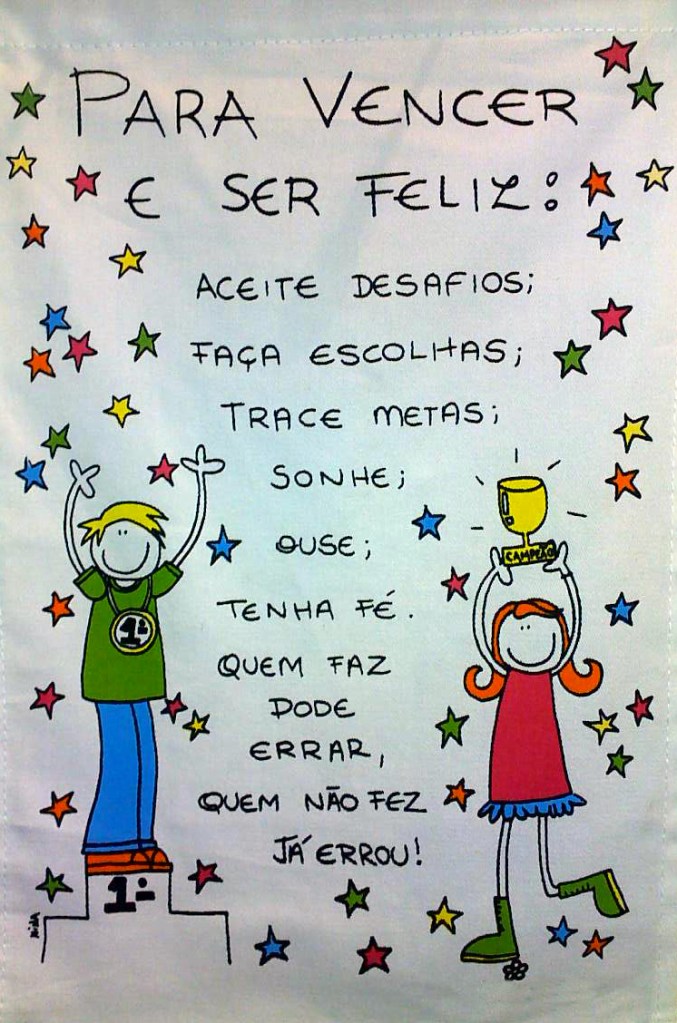 PARA VENCER
E SER FELIZ:
ACEITE DESAFIOS;
FAÇA ESCOLHAS;
TRACE METAS;
SONHE;
OUSE;
TENHA FÉ.
QUEM FAZ
PODE
ERRAR,
QUEM NÃO FEZ
JÁ ERROU!
CAMPEÃO
1º
1º